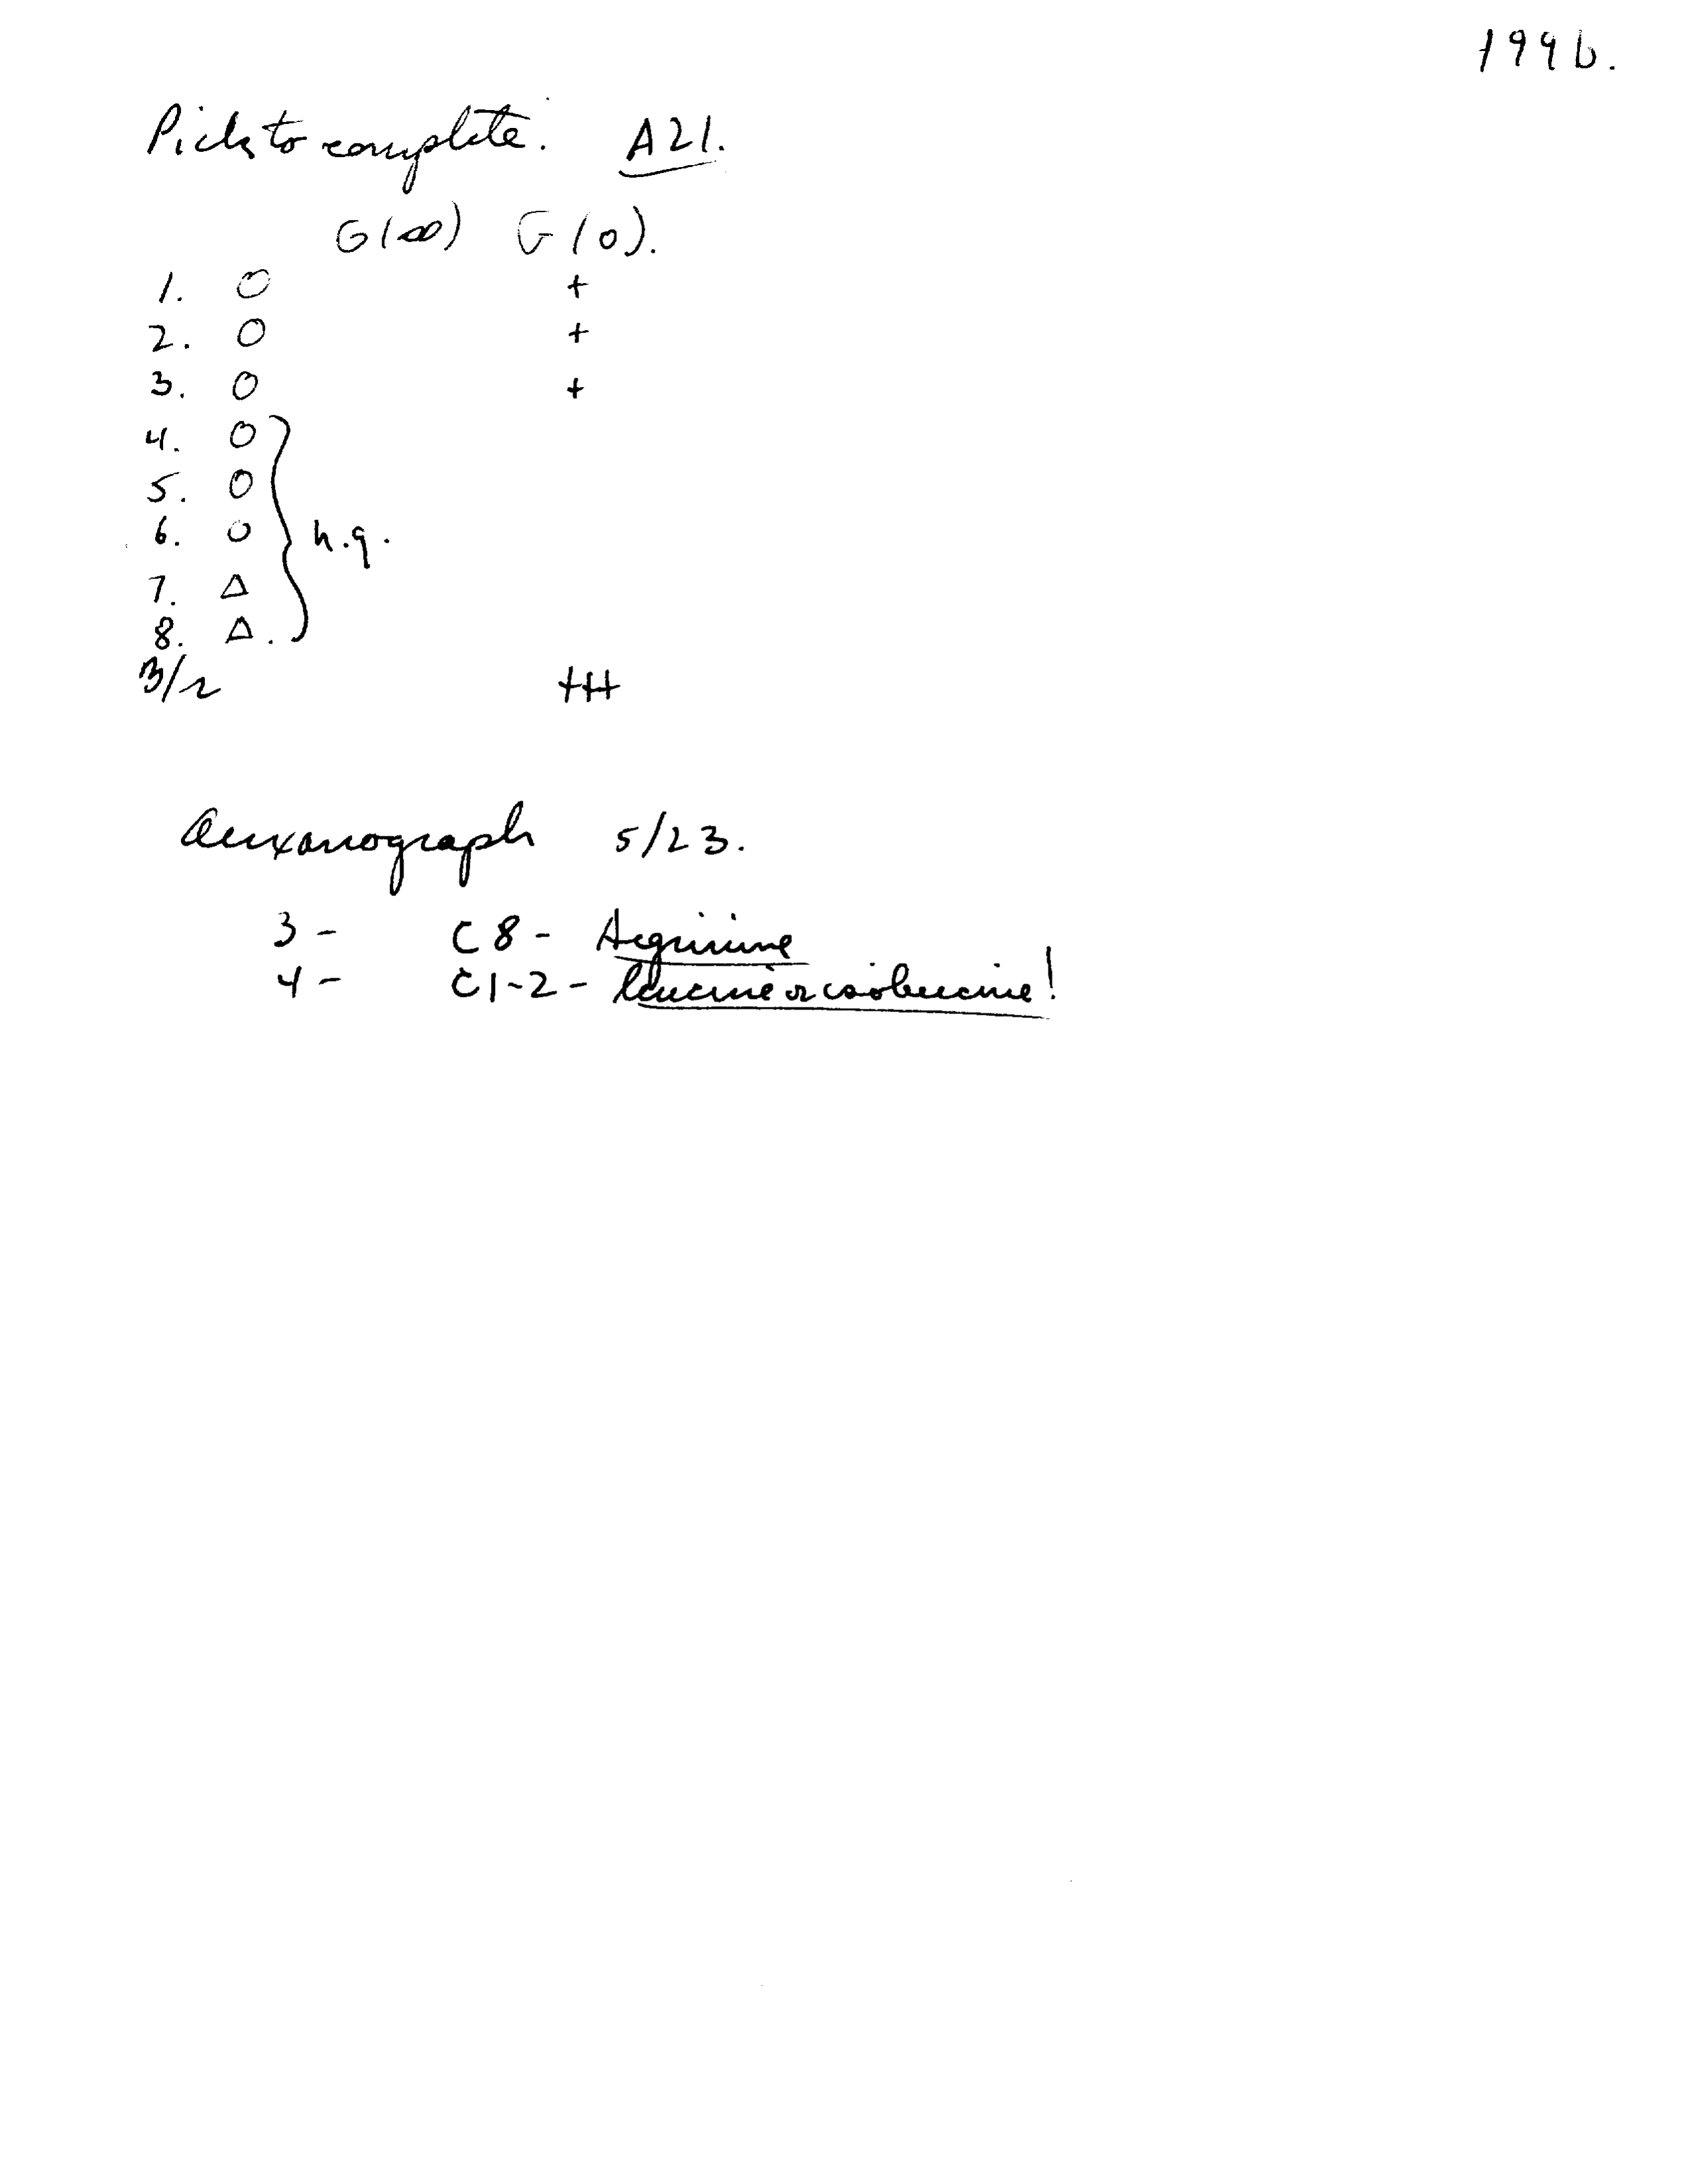 199b.
Picks to complete. A21.
G(∞) G(0).
1. O +
2. O +
3. O +
4. O
5. O
6. O n.g.
7. Δ
8. Δ.
3/2 +++
Auxanograph 5/23.
3 - C8 - Arginine
4 - C1-2 - leucine or isoleucine!